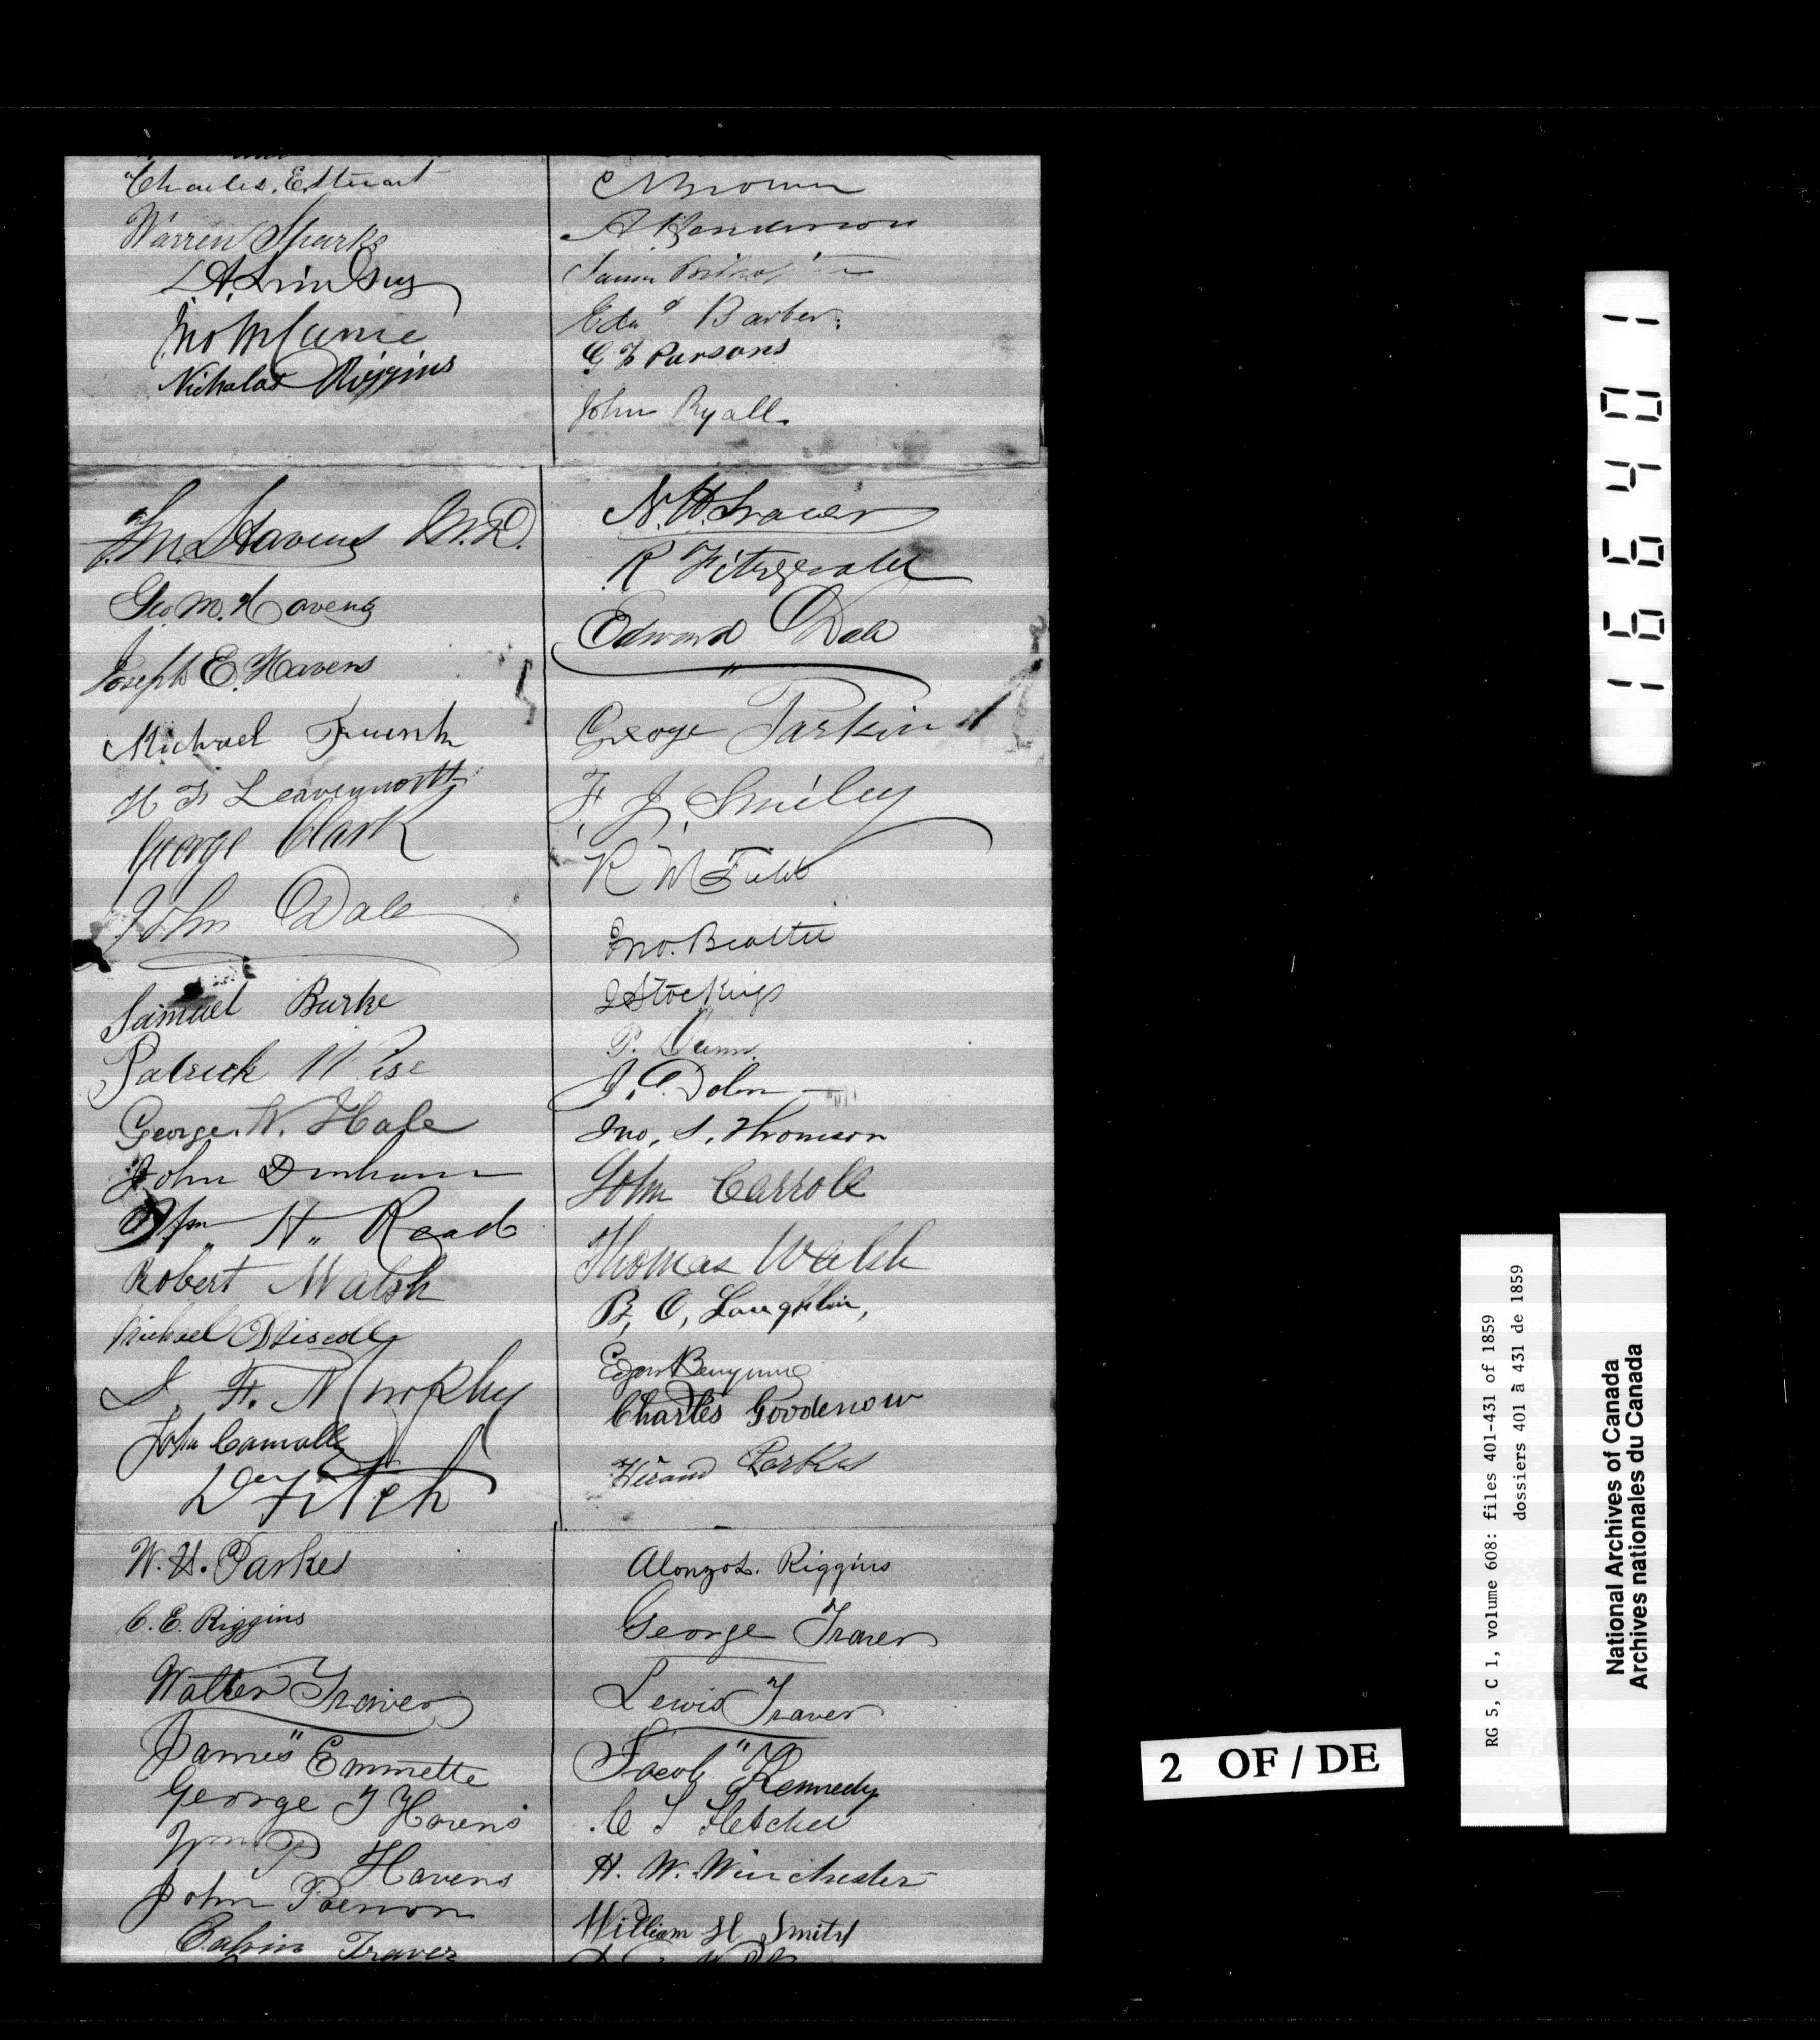 Charles. E. Stewart
Warren Sparks
A. Lindsey
Nicholas Riggins
C Brown
A Henderson
Edwd Barber.
G F Parsons
John Ryall.
Havens M.D.
Geo. M. Havens
Joseph E. Havens
Michael French
H F Leavenworth
George Clark
John Dale
Samuel Burke
Patrick Wise
George. W. Hale
John Dunham
Wm H. Read
Robert Walsh
Michael Driscoll
J. F. Murphy
John Carroll
D Fitch
N. H. Traver
R Fitzgerald
Edward Dale
George Parkin
F. J. Smiley
R W Field
Jno. Beattie
J Stockings
P. Dunn.
J. Dolan
Jno. S. Thomson
John Carroll
Thomas Walsh
B, O, Laughlin,
Charles Goodenow
Hiram Parkes
W. H. Parkes
C. E. Riggins
Walter Traver
James Emmette
George T Havens
Wm P Havens
John Pierson
Calvin Traver
Alonzo L. Riggins
George Traver
Lewis Traver
Jacob Kennedy
C S Fletcher
H. W. Winchester
William H Smith
166401
2 OF / DE
RG 5, C 1, volume 608: files 401-431 of 1859
dossiers 401 à 431 de 1859
National Archives of Canada
Archives nationales du Canada